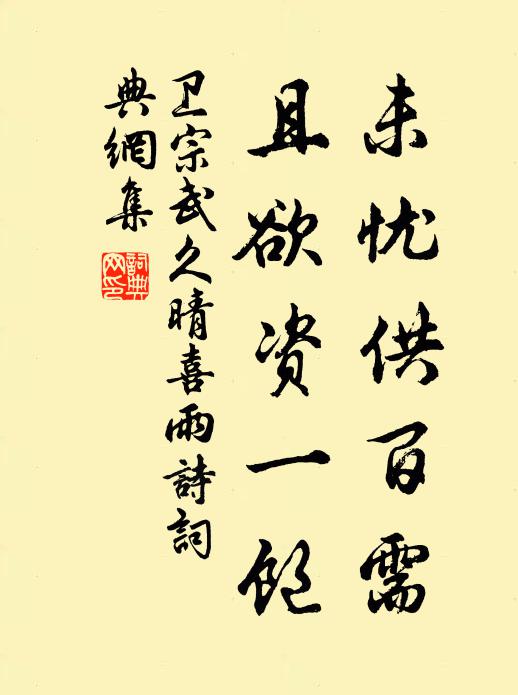 未忧供百需
且欲资一饱
卫宗武久晴喜雨詩詞
典網集
詞典网印